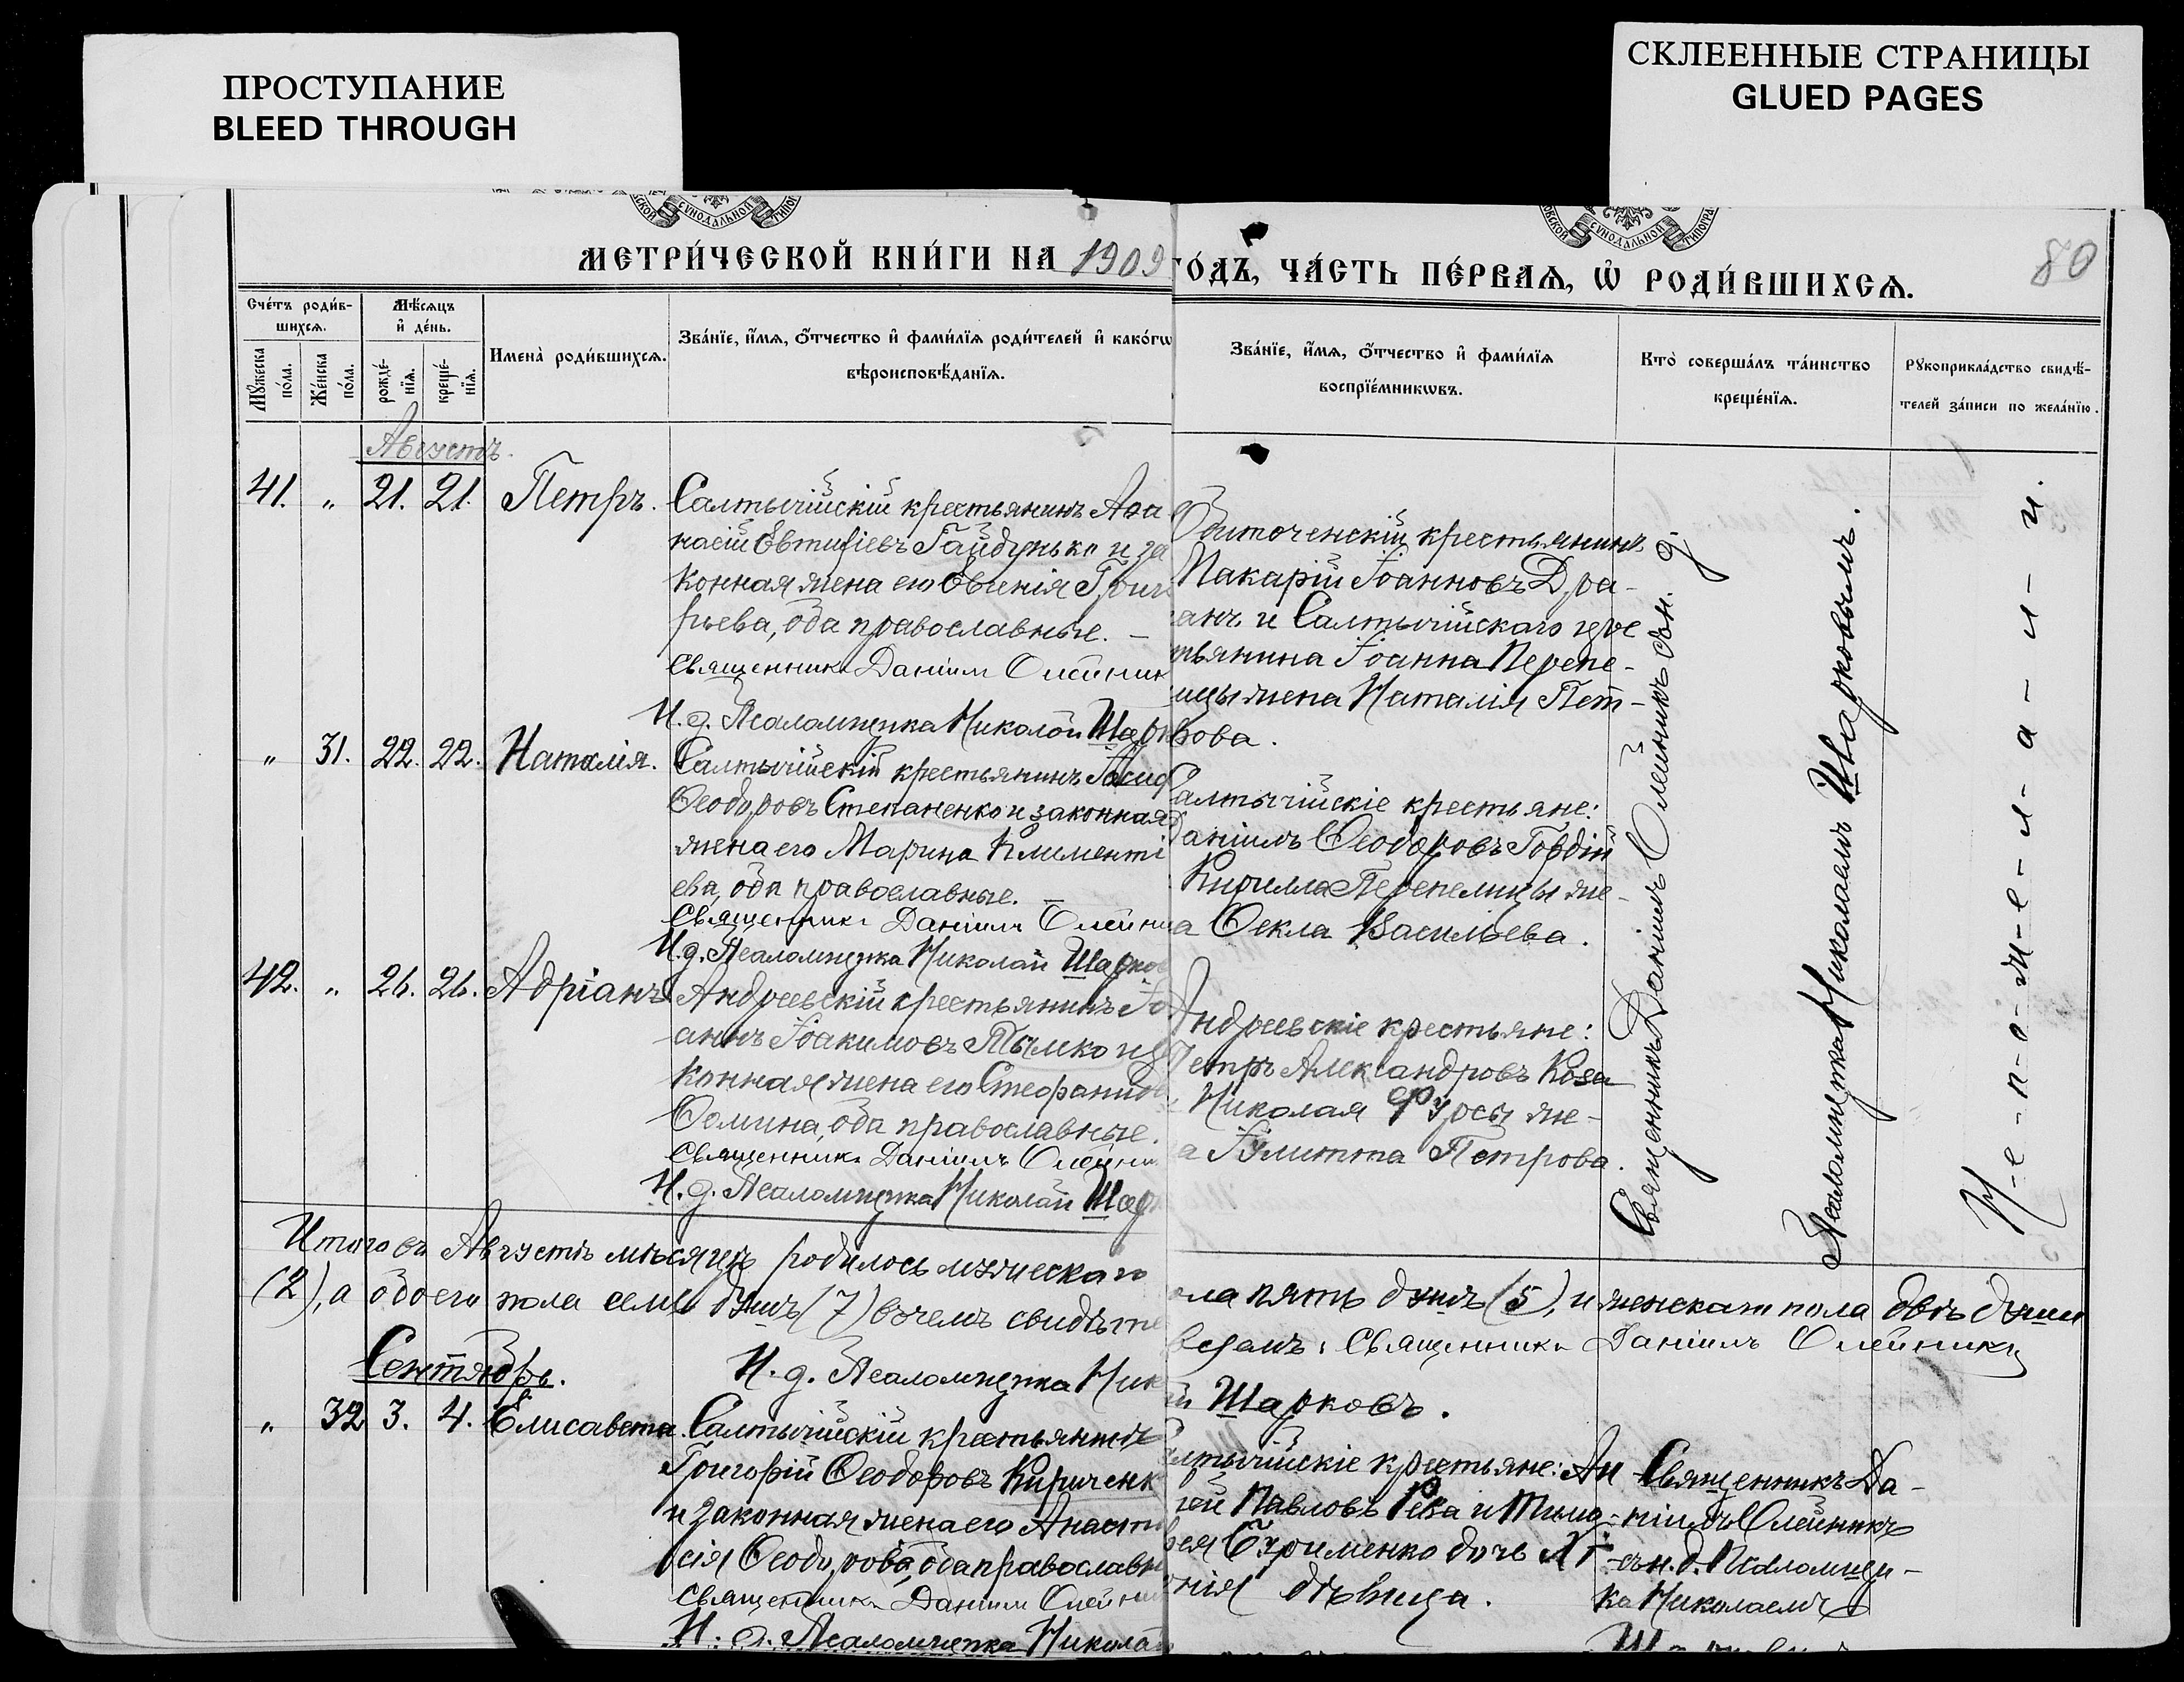 ПРОСТУПАНИЕ
BLEED THROUGH
СКЛЕЕННЫЕ СТРАНИЦЫ
GLUED PAGES
МЕТРИ́ЧЕСКОЙ КНИ́ГИ НА 1909
ГО́ДЪ, ЧА́СТЬ ПЕ́РВАѦ, Ѡ҆ РОДИ́ВШИХСѦ.
80
Сче́тъ роди́в-
шихсѧ.
Мꙋ́жеска
по́ла.
Же́нска
по́ла.
Мѣ́сѧцъ
и҆ де́нь.
рожде́-
нїѧ.
креще́-
нїѧ.
Имена̀ роди́вшихсѧ.
Зва́нїе, и҆́мѧ, ѻ҆́тчество и҆ фами́лїѧ роди́телей и҆ како́гѡ
вѣроисповѣ́данїѧ.
Зва́нїе, и҆́мѧ, ѻ҆́тчество и҆ фами́лїѧ
воспрїе́мникѡвъ.
Кто̀ соверша́лъ та́инство
креще́нїѧ.
Рꙋкоприкла́дство свидѣ́-
телей за́писи по жела́нїю.
Августъ.
41. „ 21. 21. Петръ.
Салтычійскій крестьянинъ Афа
насій Евтихіевъ Гайдунько и за
конная жена его Евгенія Григо
рьева, оба православные. —
Священникъ Даніилъ Олейник
И. д. Псаломщика Николай Шарк
Обиточенскій крестьянинъ
Макарій Іоанновъ Дра-
ганъ и Салтычійскаго крес
тьянина Іоанна Перепе-
лицы жена Наталія Пет-
рова.
„ 31. 22. 22. Наталія.
Салтычійскій крестьянинъ Іосиф
Ѳеодоровъ Степаненко и законная
жена его Марина Клименті
ева, оба православные. —
Священникъ Даніилъ Олейни
И. д. Псаломщика Николай Шарков
Салтычійскіе крестьяне:
Даніилъ Ѳеодоровъ Гордій
Кирилла Перепелицы же-
а Ѳекла Васильева.
42. „ 26. 26. Адріанъ
Андреевскій крестьянинъ Іо
аннъ Іоакимовъ Тымко и за
конная жена его Стефанида
Ѳомина, оба православные.
Священникъ Даніилъ Олейни
И. д. Псаломщика Николай Шар
Андреевскіе крестьяне:
Петръ Александровъ Коза
Николая Фурсы же-
а Іулитта Петрова.
Священникъ Даніилъ Олейникъ съ и. д.
Псаломщика Николаемъ Шарковымъ.
Н-е-п-о-ж-е-л-а-л-и.
Итого въ Августѣ мѣсяцѣ родилось мужескаго
ола пять душъ (5), и женскаго пола двѣ души
(2), а обоего пола семь душъ (7) въ чемъ свидѣте
вуемъ: Священникъ Даніилъ Олейникъ
И. д. Псаломщика Ник
й Шарковъ.
Сентябрь.
„ 32 3. 4. Елисавета.
Салтычійскій крестьянинъ
Григорій Ѳеодоровъ Кириченк
и законная жена его Анаста
сія Ѳеодорова, оба православн
Священникъ Даніилъ Олейни
И. д. Псаломщика Николай
алтычійскіе крестьяне: Ан
рей Павловъ Рева и Тимо-
ѳея Ефименко дочь
дѣвица.
Священникъ Да-
ніилъ Олейникъ
съ и. д. Псаломщи-
ка Николаемъ